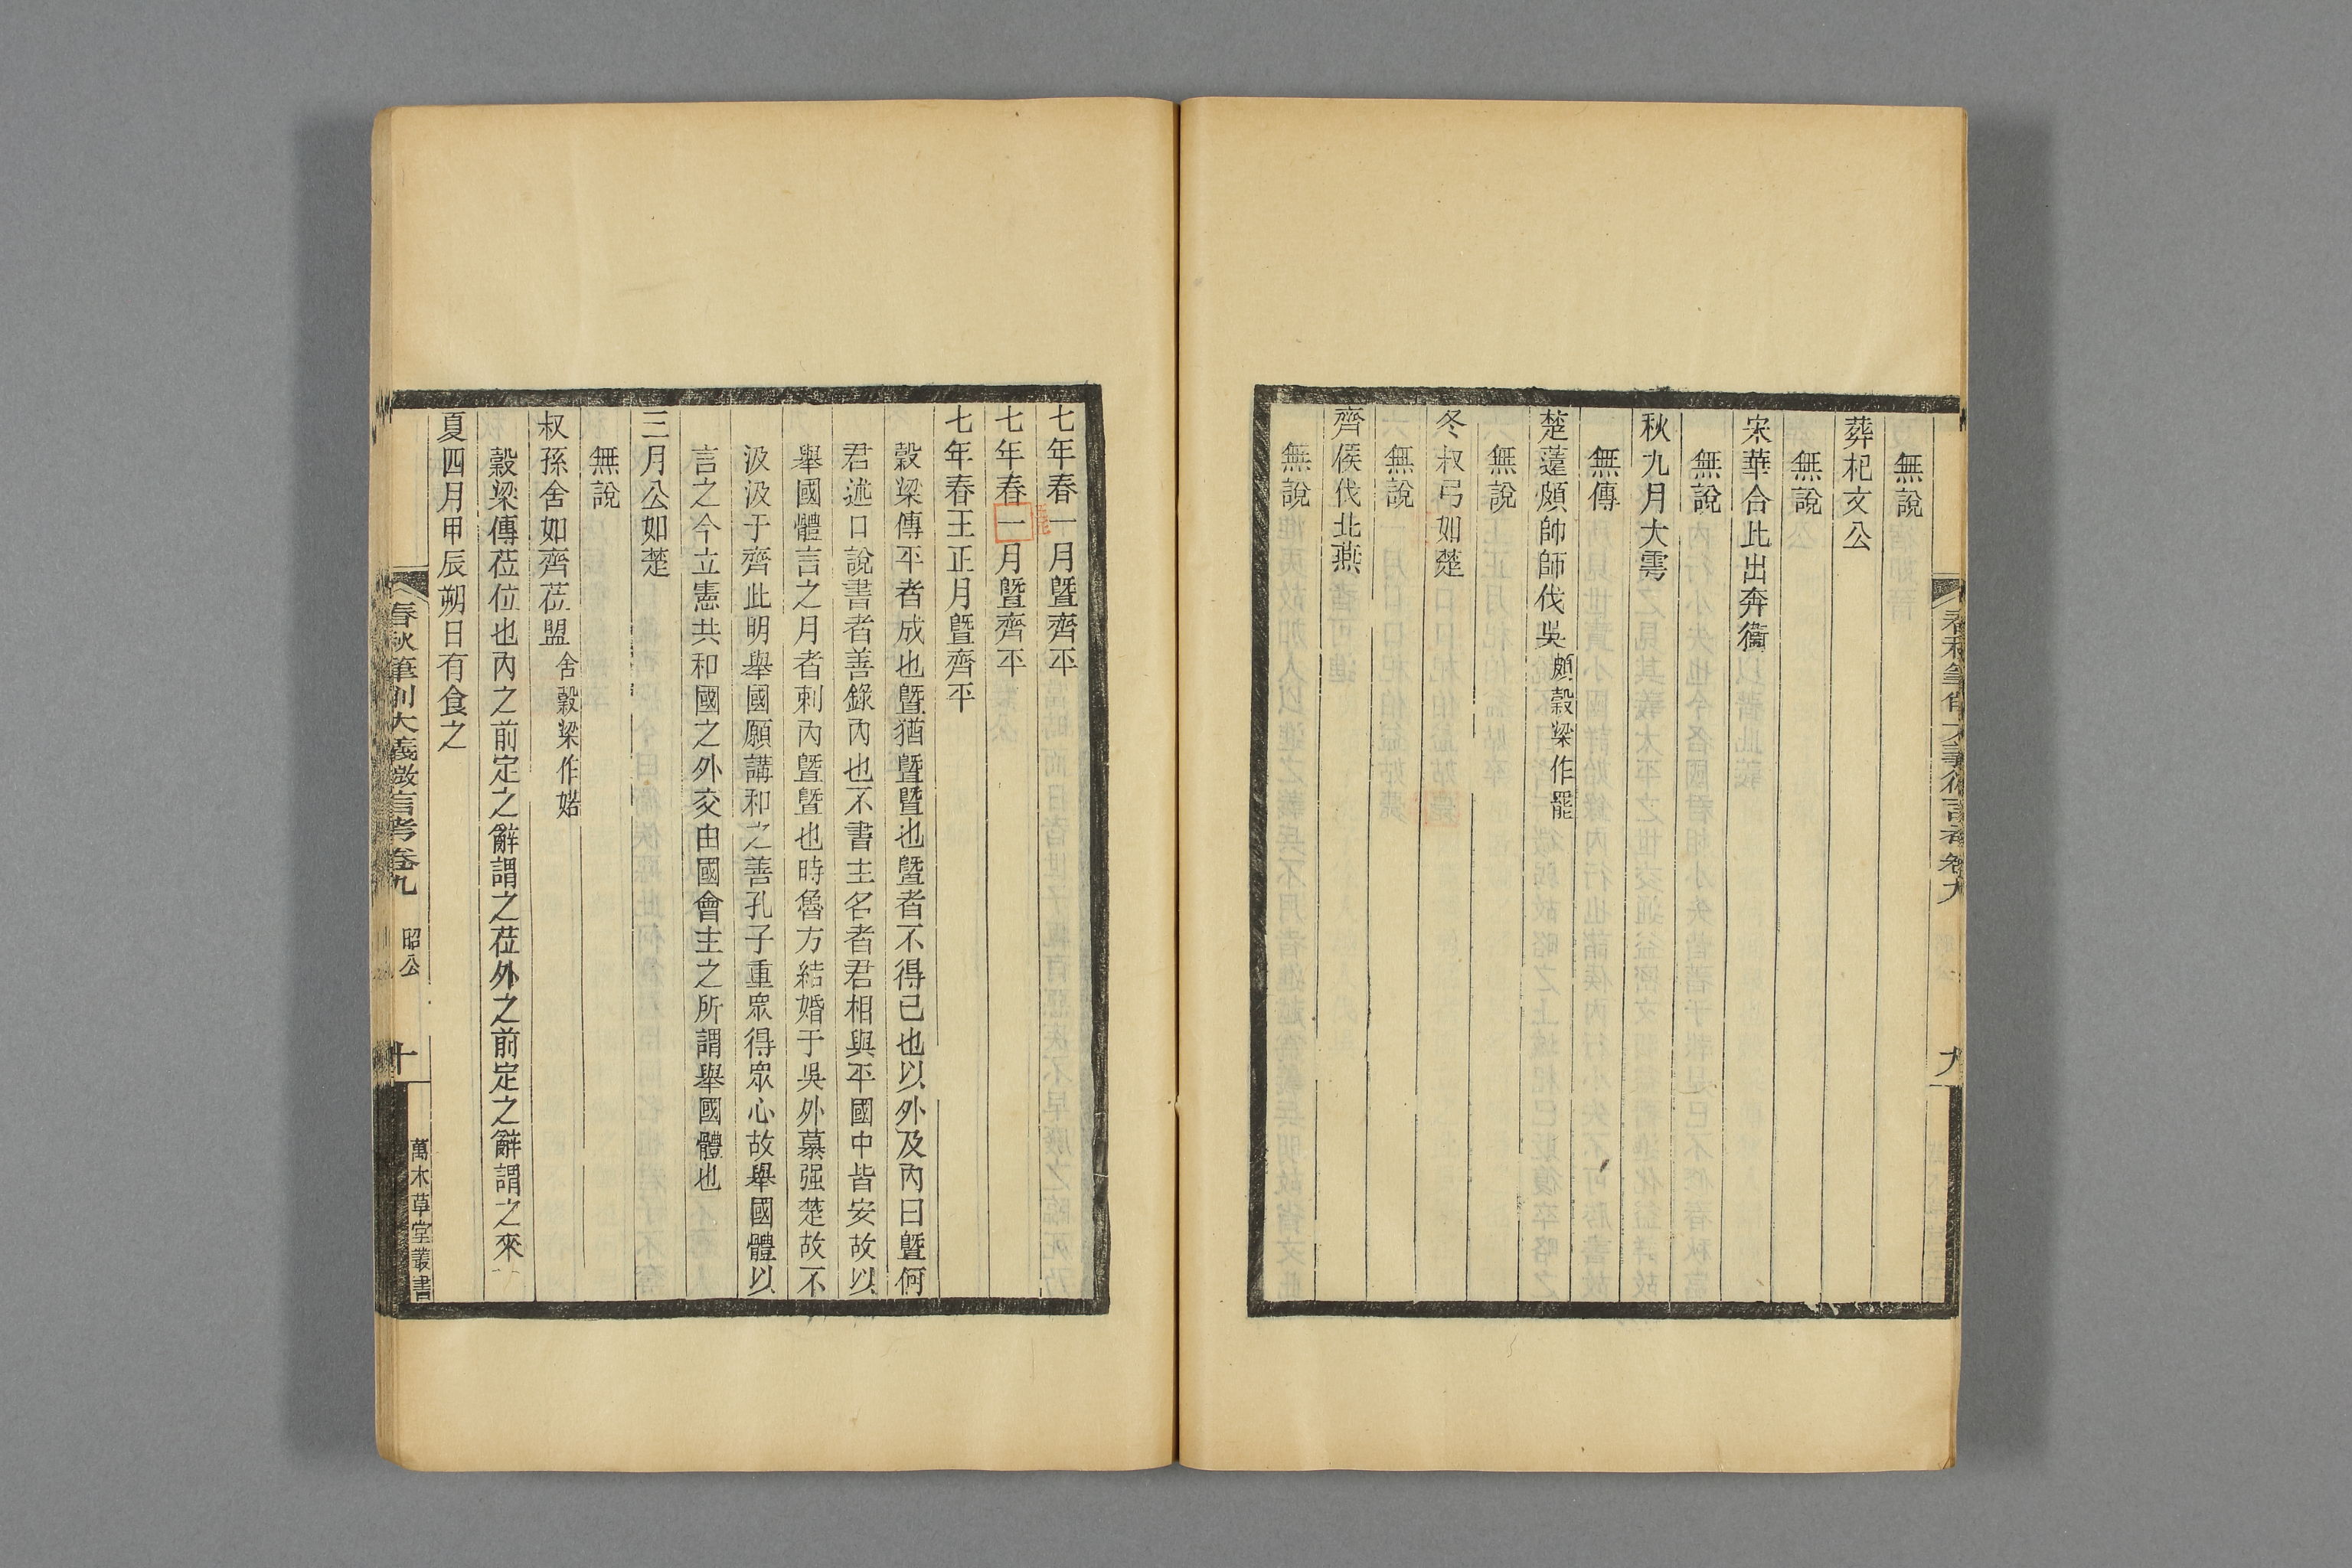 無說
葬杞文公
無說
宋華合比出奔衞
無說
秋九月大雩
無傳
楚薳頗帥師伐吳頗穀梁作罷
無說
冬叔弓如楚
無說
齊侯伐北燕
無說
七年春一月曁齊平
七年春一月曁齊平
七年春王正月曁齊平
穀梁傳平者成也曁猶曁曁也曁者不得已也以外及內曰曁何
君述口說書者善錄內也不書主名者君相與平國中皆安故以
舉國體言之月者刺內曁曁也時魯方結婚于吳外慕强楚故不
汲汲于齊此明舉國願講和之善孔子重眾得眾心故舉國體以
言之今立憲共和國之外交由國會主之所謂舉國體也
三月公如楚
無說
叔孫舍如齊莅盟舍穀梁作婼
穀梁傳莅位也內之前定之辭謂之莅外之前定之辭謂之來
夏四月甲辰朔日有食之
春秋筆削大義微言考卷九 昭公 十
萬木草堂叢書